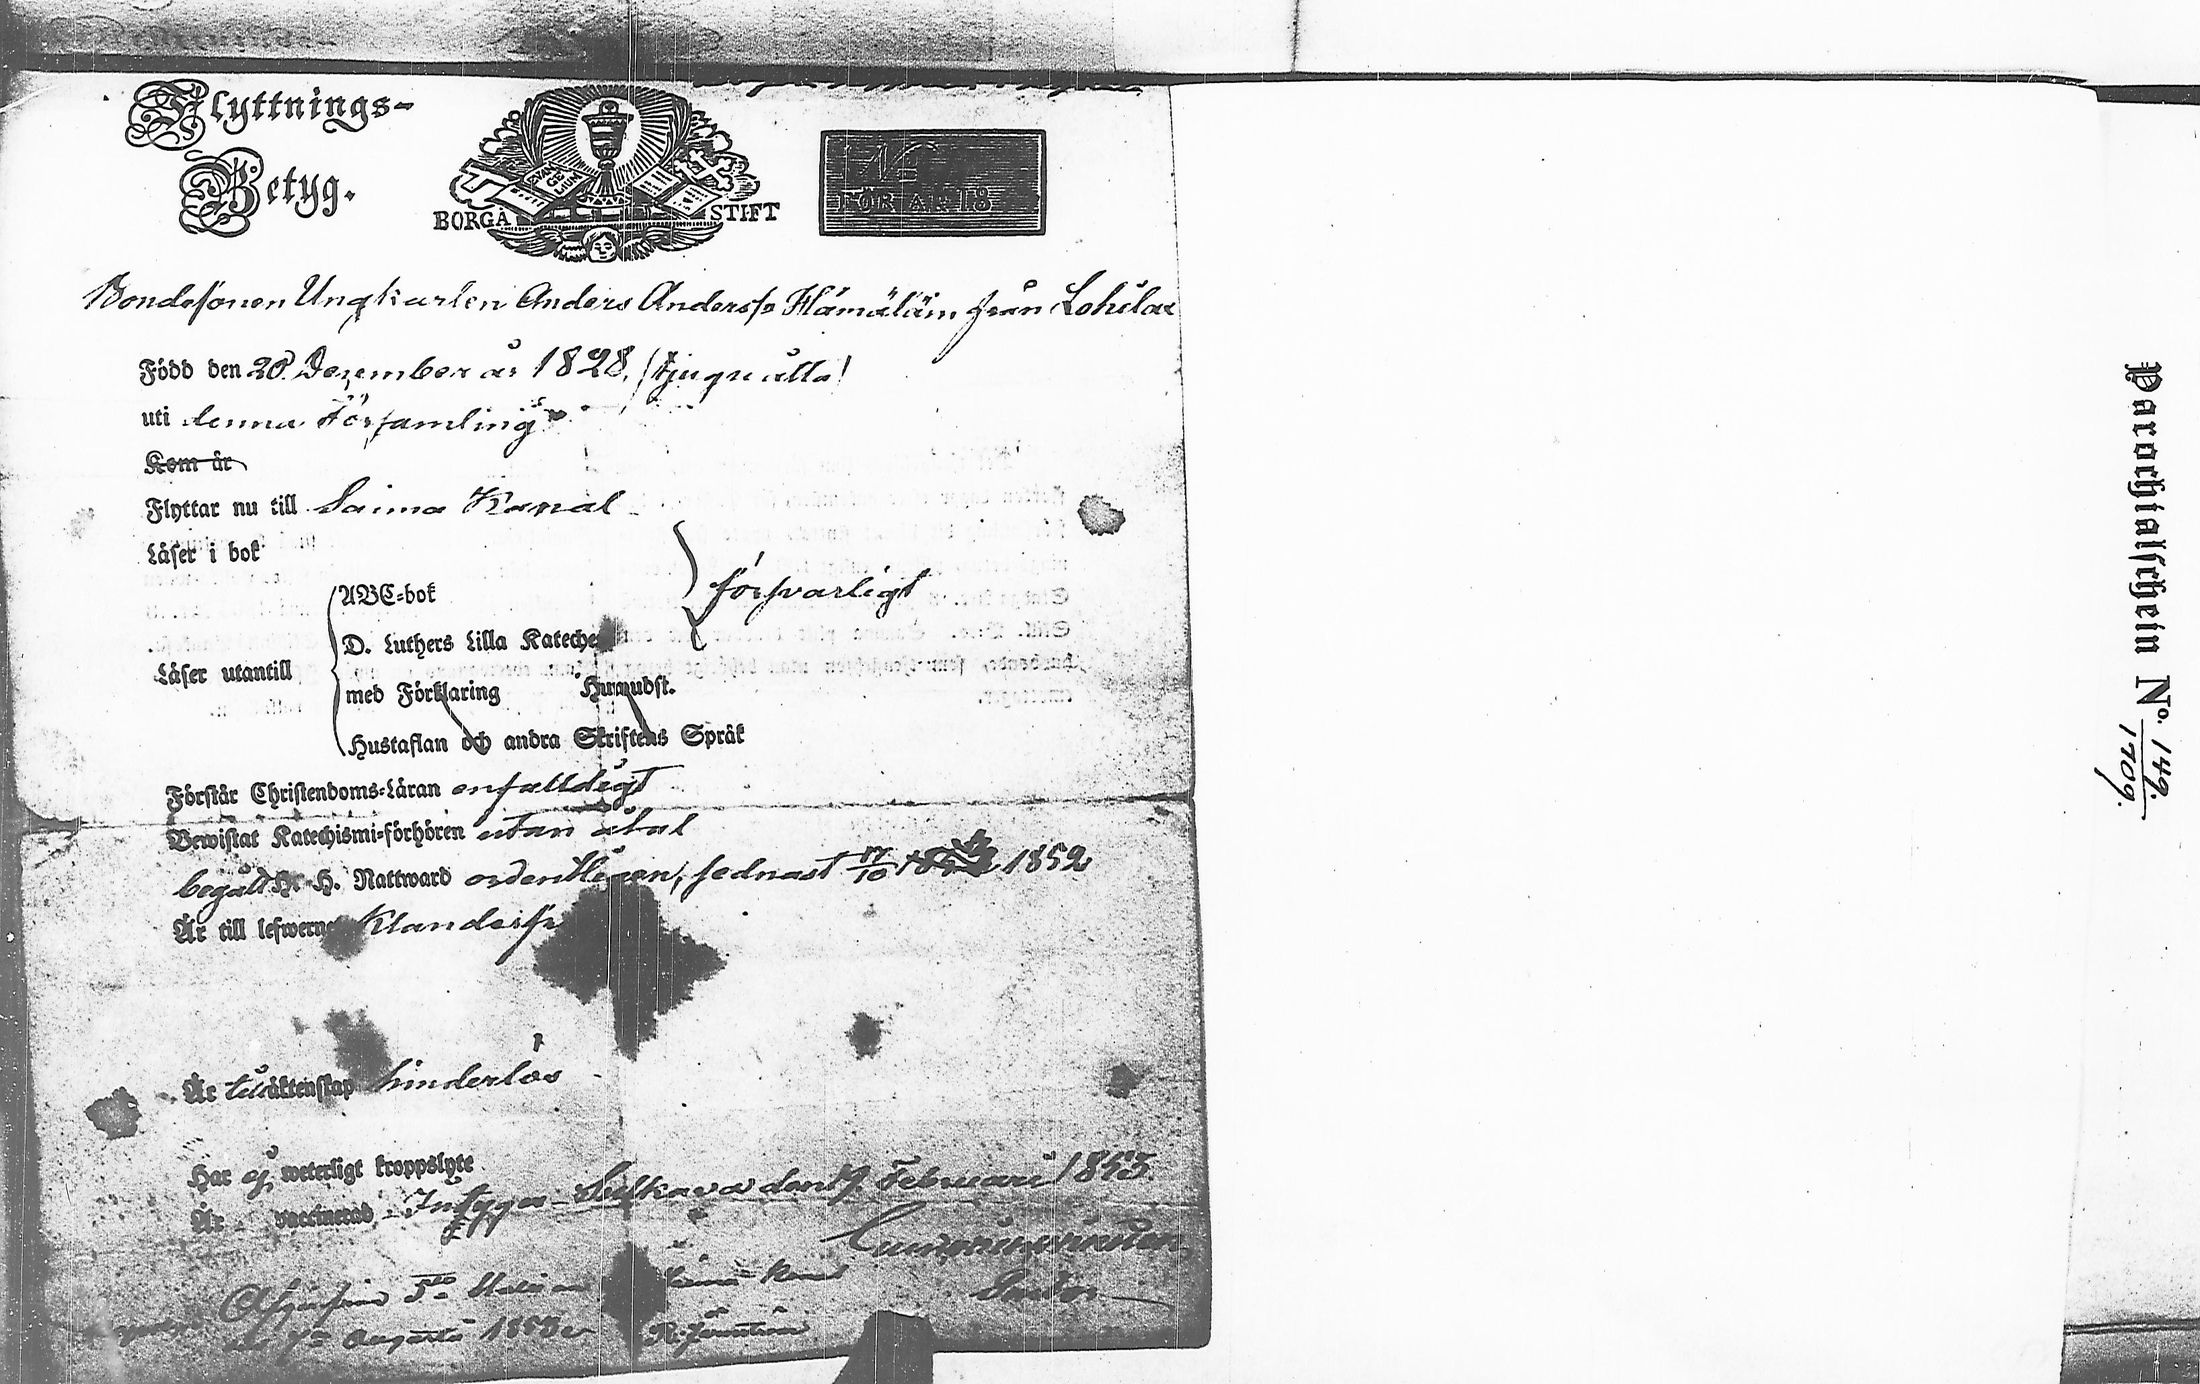 Flyttnings-
Betyg.
EVAN
GE
LIUM
BORGÅ STIFT
FÖR ÅR 18
Bondesonen Ungkarlen Anders Anderss. Hämäläin från Lohilax
Född den 28 Dezember år 1828. (tjugu åtta)
uti denna Församling
Kom år
Flyttar nu till Saima Kanal
Läser i bok
försvarligt
ABC-bok
D. Luthers Lilla Kateches
Läser utantill
med Förklaring Huwudst.
Hustaflan och andra Skriftens Språk
Förstår Christendoms-Läran enfalldigt
Bewistat Katechismi-förhören utan åtal
begått H. H. Nattward ordentligen, sednast 17/10 1852
Är till lefwerne klanderfri
Är till äktenskap hinderlös
Har ej weterligt kroppslyte
Är vaccinerad Intygar Sulkava den 9 Februari 1853.
Pastor
den 7 Augusti 1853
Parochialschein No. 149.
1709.